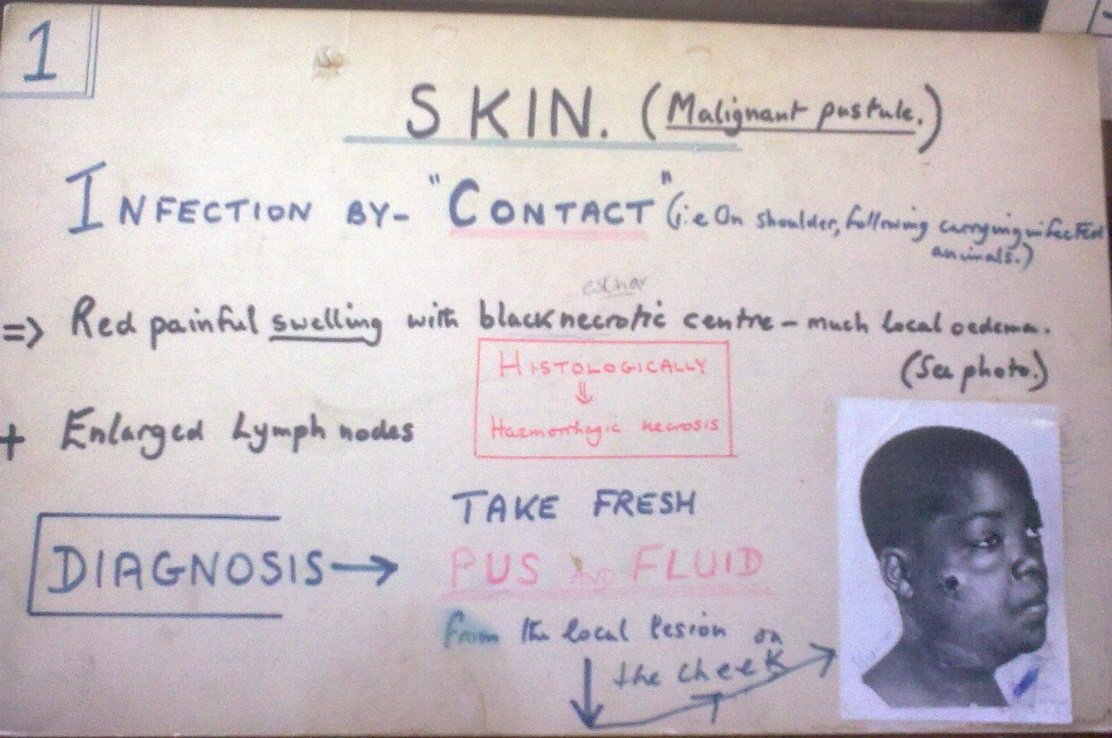 1
SKIN. (Malignant pustule.)
INFECTION BY- "CONTACT" (i.e On shoulder, following carrying infected
animals.)
eschar
=> Red painful swelling with black necrotic centre - much local oedema.
(See photo.)
HISTOLOGICALLY
⇓
Haemorrhagic necrosis
+ Enlarged Lymph nodes
TAKE FRESH
DIAGNOSIS →
PUS AND FLUID
From the local lesion on
the cheek